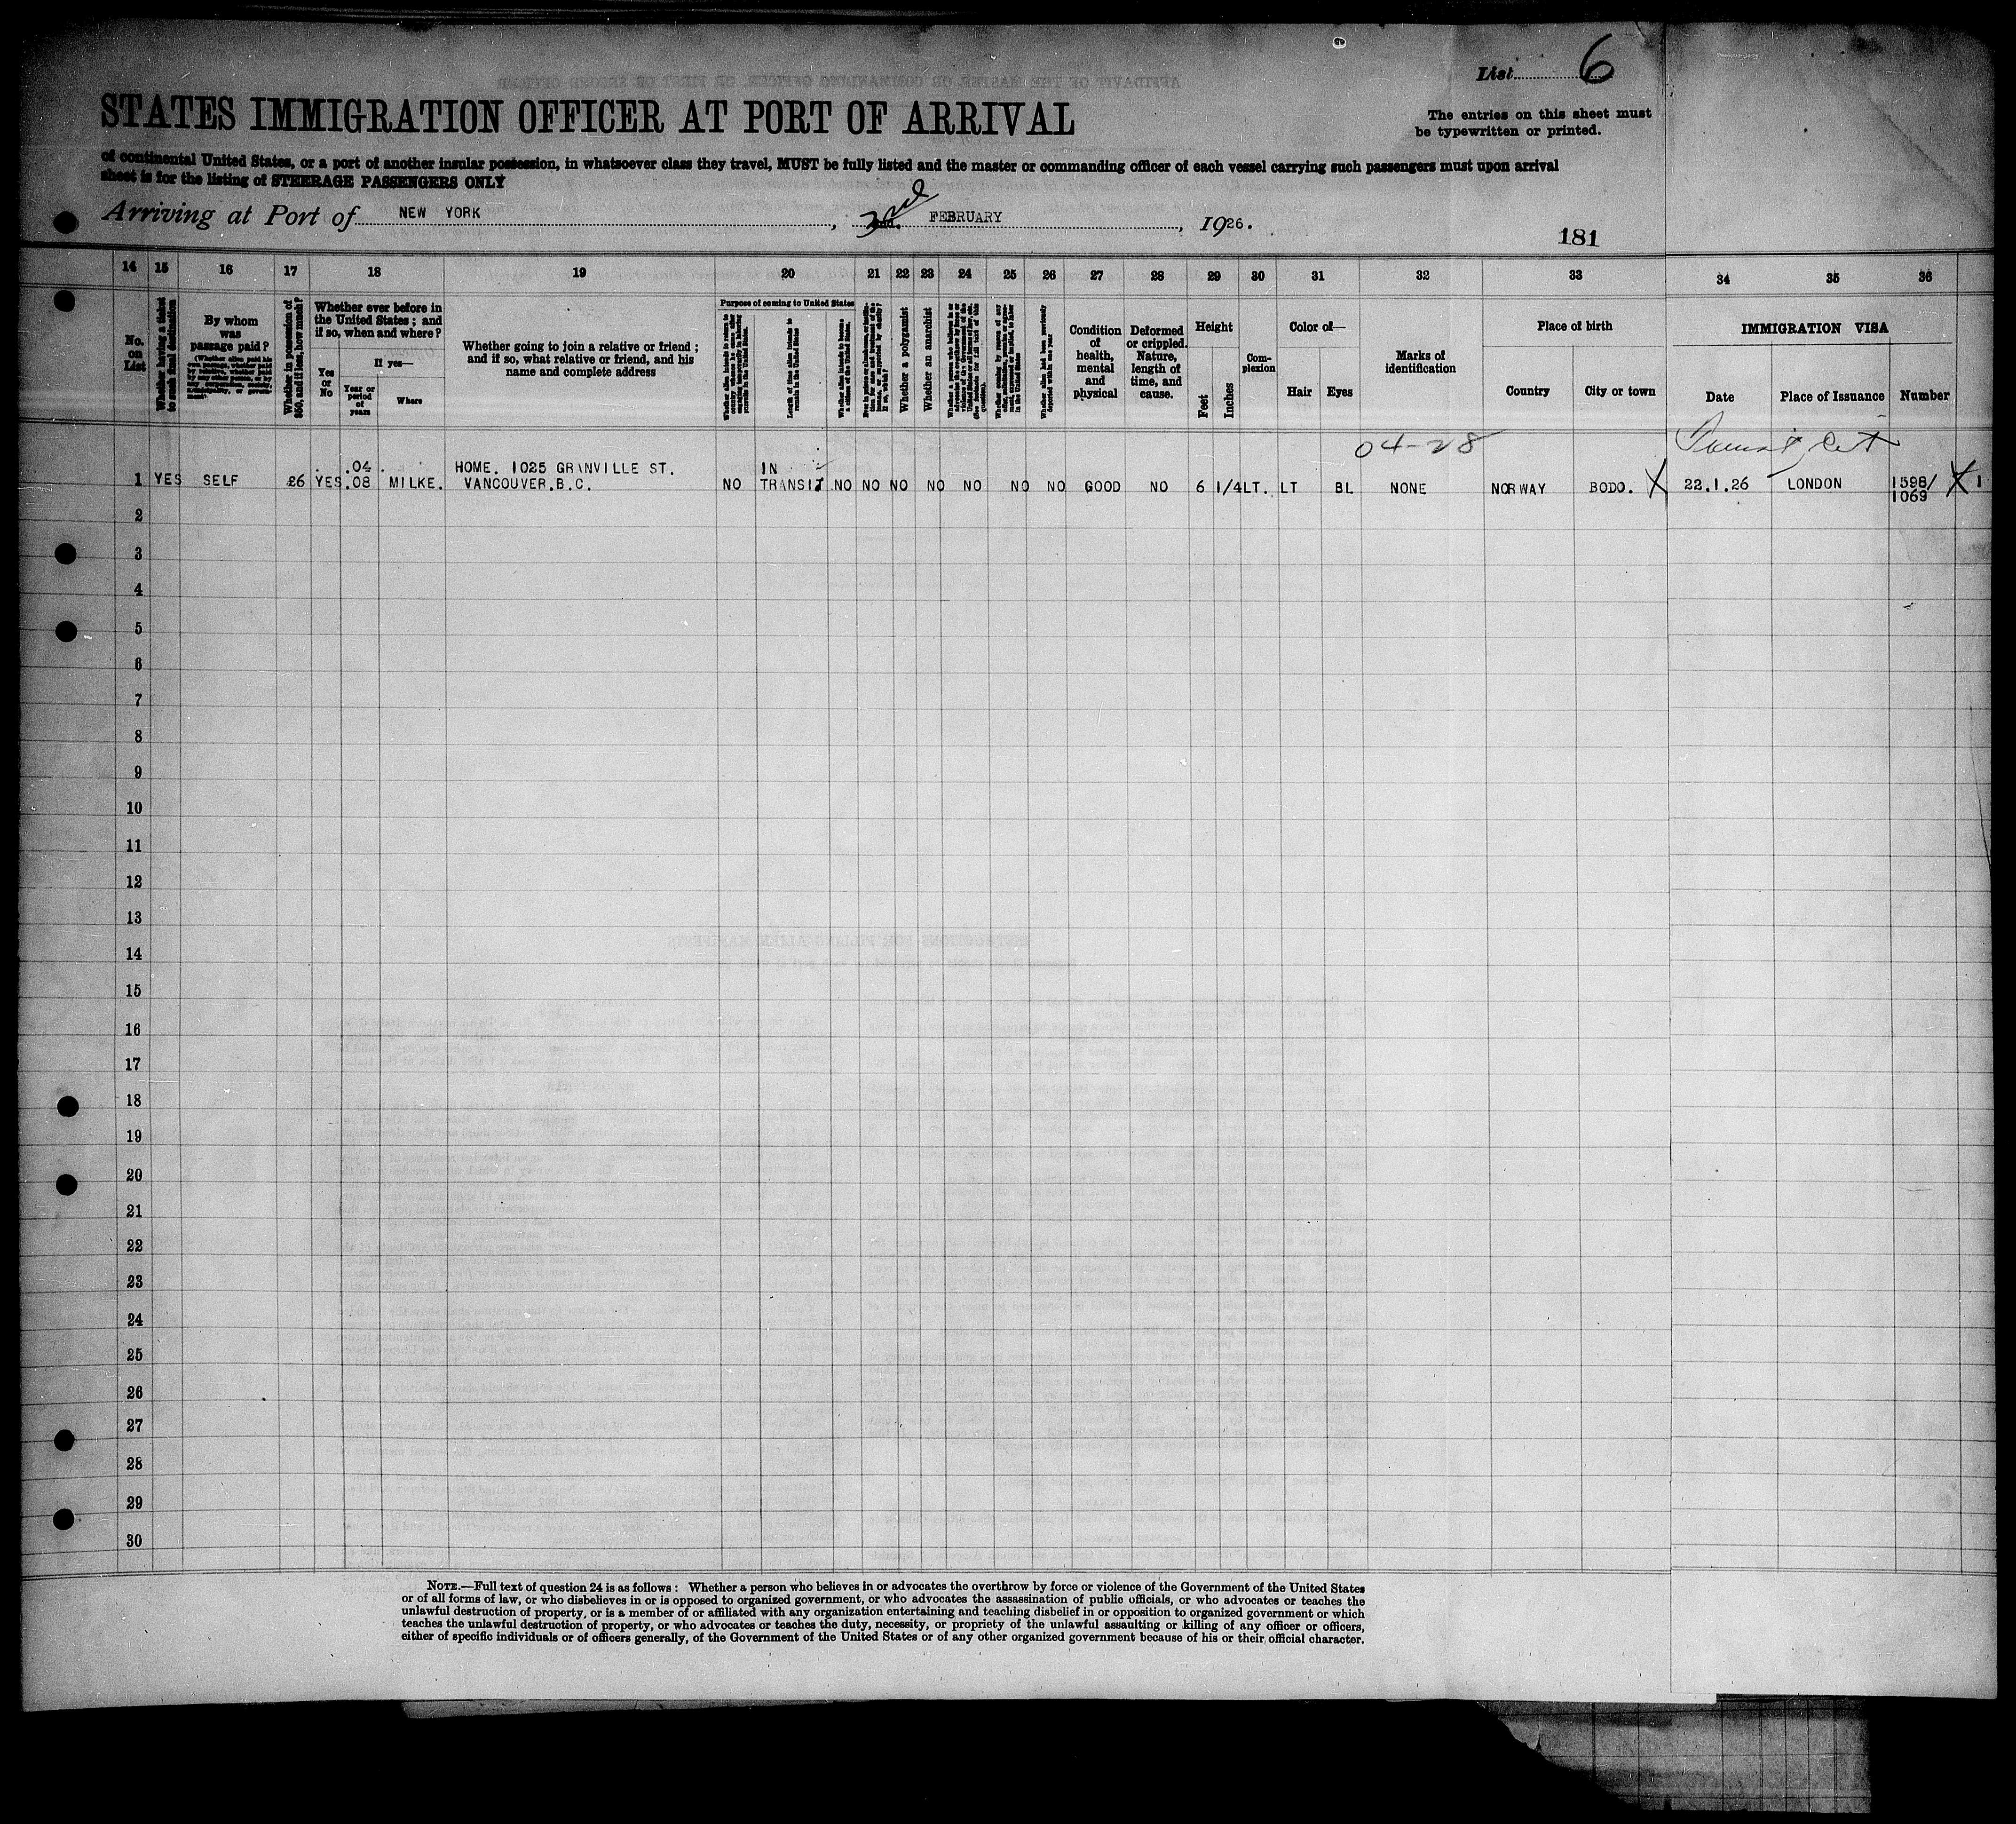 List 6
STATES IMMIGRATION OFFICER AT PORT OF ARRIVAL
The entries on this sheet must
be typewritten or printed.
of continental United States, or a port of another insular possession, in whatsoever class they travel, MUST be fully listed and the master or commanding officer of each vessel carrying such passengers must upon arrival
sheet is for the listing of STEERAGE PASSENGERS ONLY
Arriving at Port of NEW YORK, 3rd FEBRUARY, 1926.
181
14 15 16 17 18 19 20 21 22 23 24 25 26 27 28 29 30 31 32 33 34 35 36
No. on List
Whether having a ticket to such final destination
By whom was passage paid?
Whether in possession of $50, and if less, how much?
Whether ever before in the United States; and if so, when and where?
Yes or No
If yes—
Year or period of years
Where
Whether going to join a relative or friend; and if so, what relative or friend, and his name and complete address
Purpose of coming to United States
Length of time alien intends to remain in the United States
Whether a polygamist
Whether an anarchist
Condition of health, mental and physical
Deformed or crippled. Nature, length of time, and cause.
Height
Feet
Inches
Complexion
Color of—
Hair
Eyes
Marks of identification
Place of birth
Country
City or town
IMMIGRATION VISA
Date
Place of Issuance
Number
04-28
1 YES SELF 26 YES .04 .08 MILKE. HOME. 1025 GRANVILLE ST. VANCOUVER.B.C. NO IN TRANSIT NO NO NO NO NO NO NO GOOD NO 6 1/4 LT. LT BL NONE NORWAY BODO. X 22.1.26 LONDON 1598/1069 X 1
2
3
4
5
6
7
8
9
10
11
12
13
14
15
16
17
18
19
20
21
22
23
24
25
26
27
28
29
30
NOTE.—Full text of question 24 is as follows: Whether a person who believes in or advocates the overthrow by force or violence of the Government of the United States
or of all forms of law, or who disbelieves in or is opposed to organized government, or who advocates the assassination of public officials, or who advocates or teaches the
unlawful destruction of property, or is a member of or affiliated with any organization entertaining and teaching disbelief in or opposition to organized government or which
teaches the unlawful destruction of property, or who advocates or teaches the duty, necessity, or propriety of the unlawful assaulting or killing of any officer or officers,
either of specific individuals or of officers generally, of the Government of the United States or of any other organized government because of his or their official character.